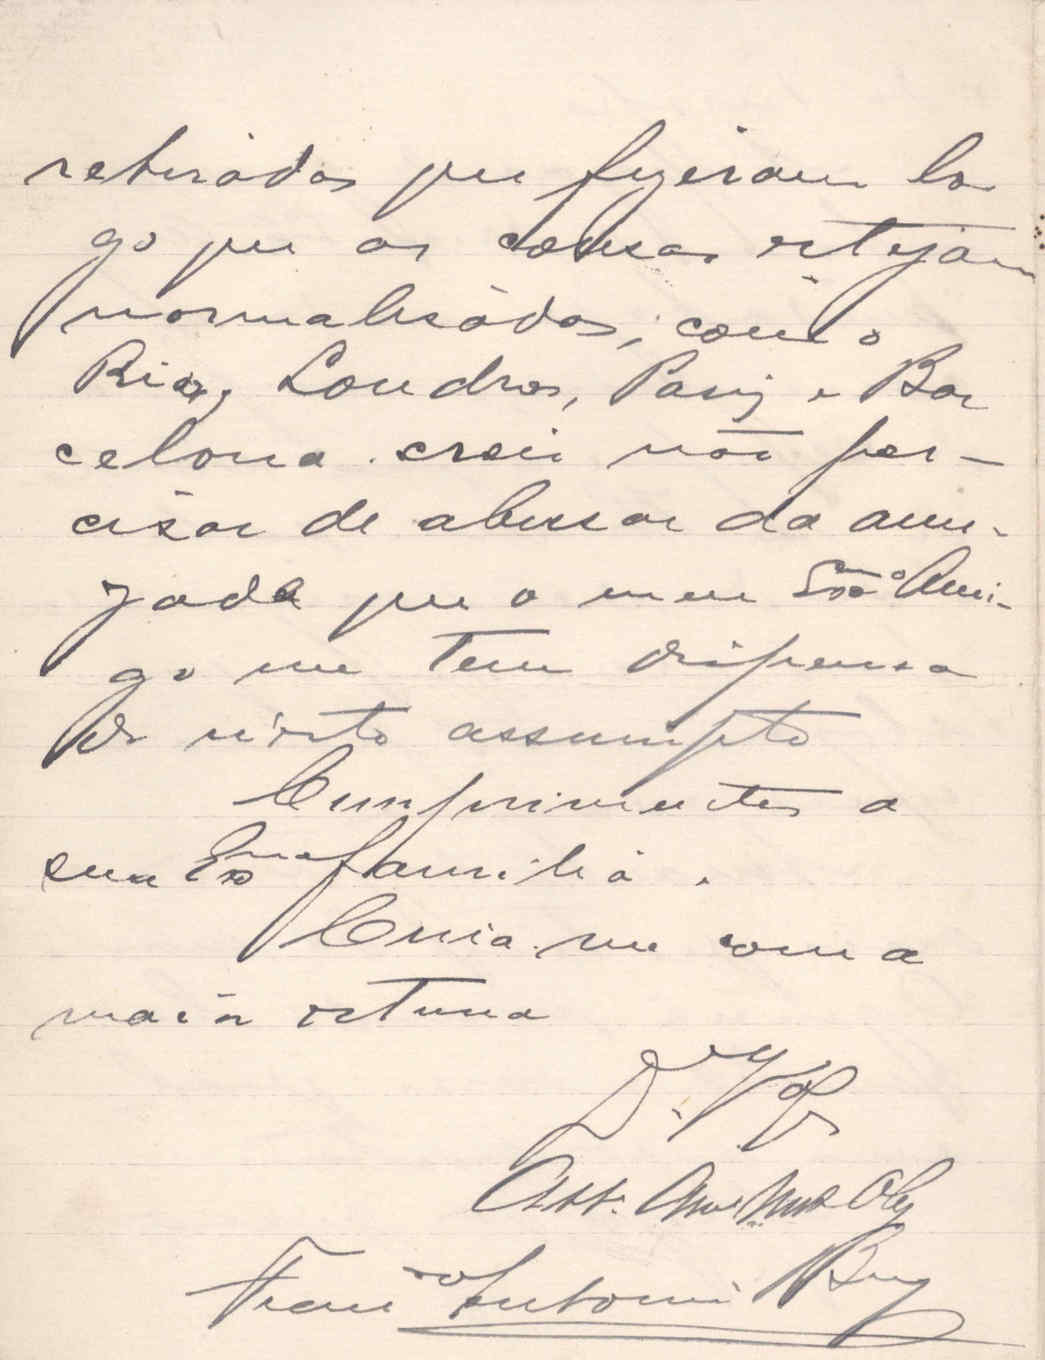 retiradas que fizeram lo
go que as cousas estejam
normalisadas, como
Rio, Londres, Pariz e Bar
celona. creio não per-
cisar de abusar da ami-
zade que o meu Exmo Ami-
go me tem dispensa
do n'este assumpto
Cumprimentos a
sua Exma familia.
Creia-me com a
maior estima
De V. Ex
Att. Amo Mto Obg
Franco Antonio